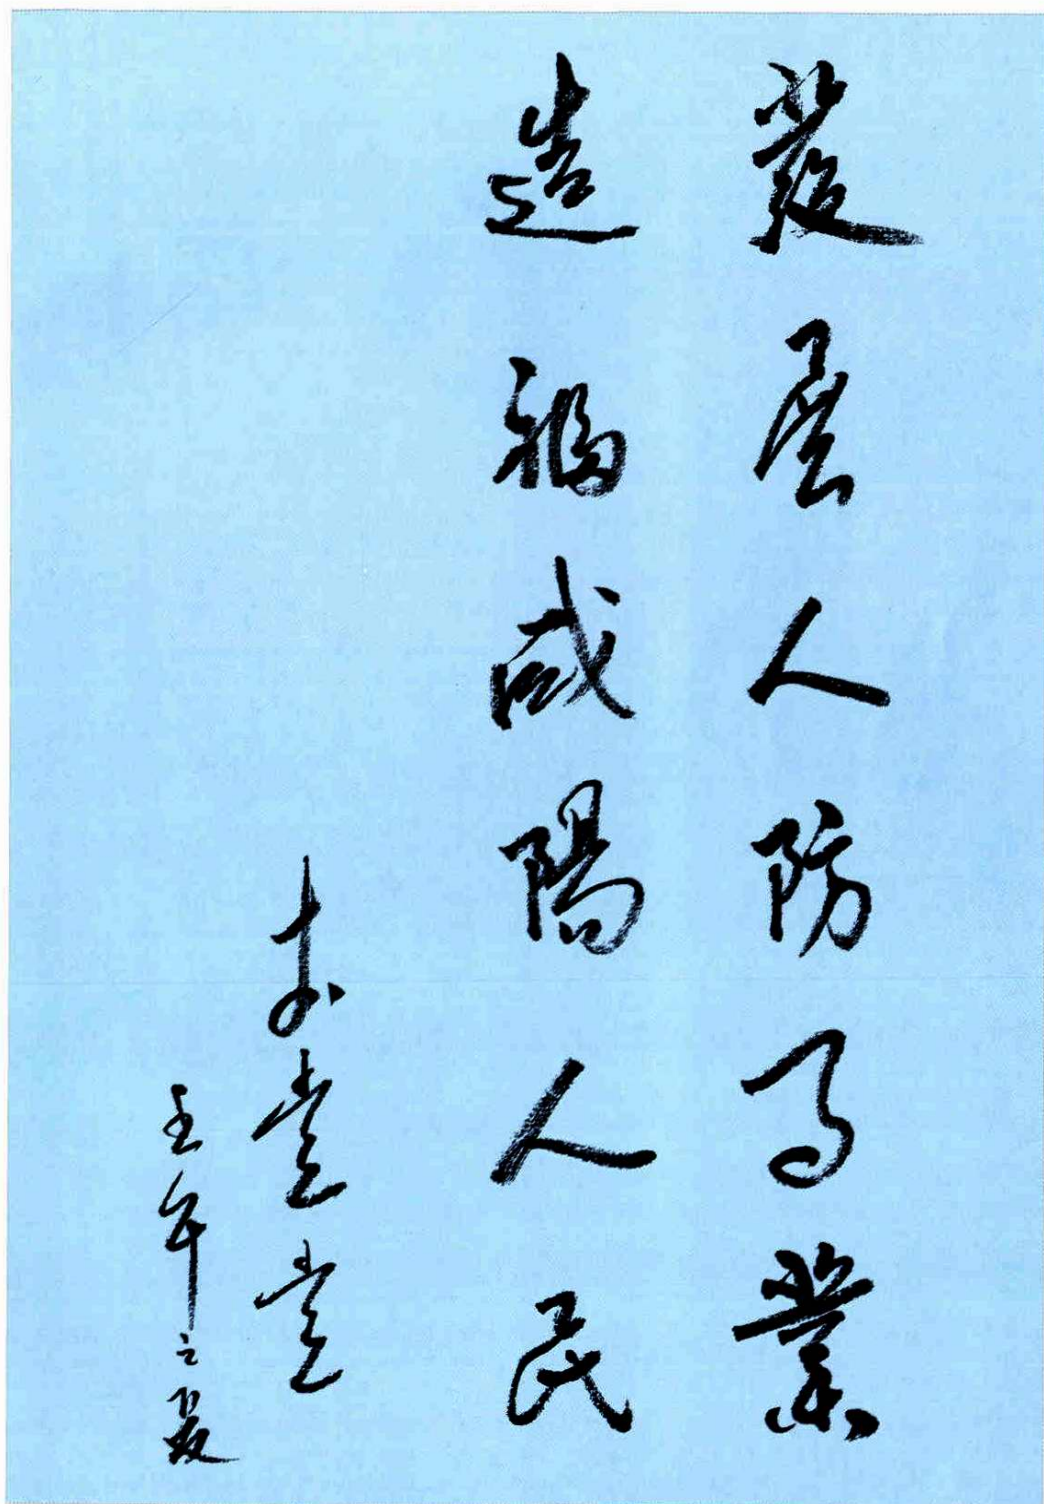 發展人防事業
造福咸陽人民
李堂堂
壬午之夏